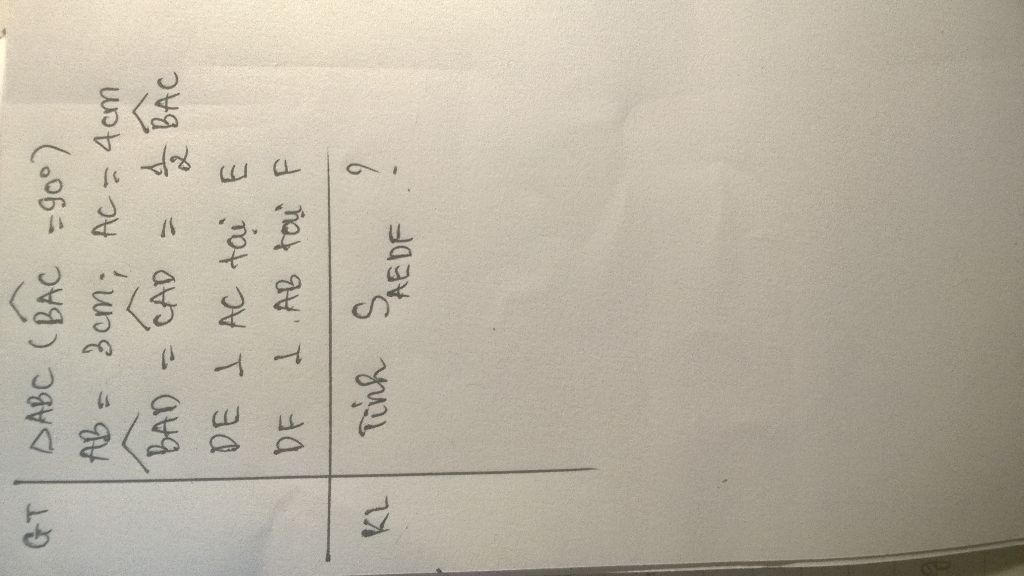 GT ΔABC (BAC^ = 90°)
AB = 3cm; AC = 4cm
BAD^ = CAD^ = 1/2 BAC^
DE ⊥ AC tại E
DF ⊥ AB tại F
KL Tính S_AEDF ?